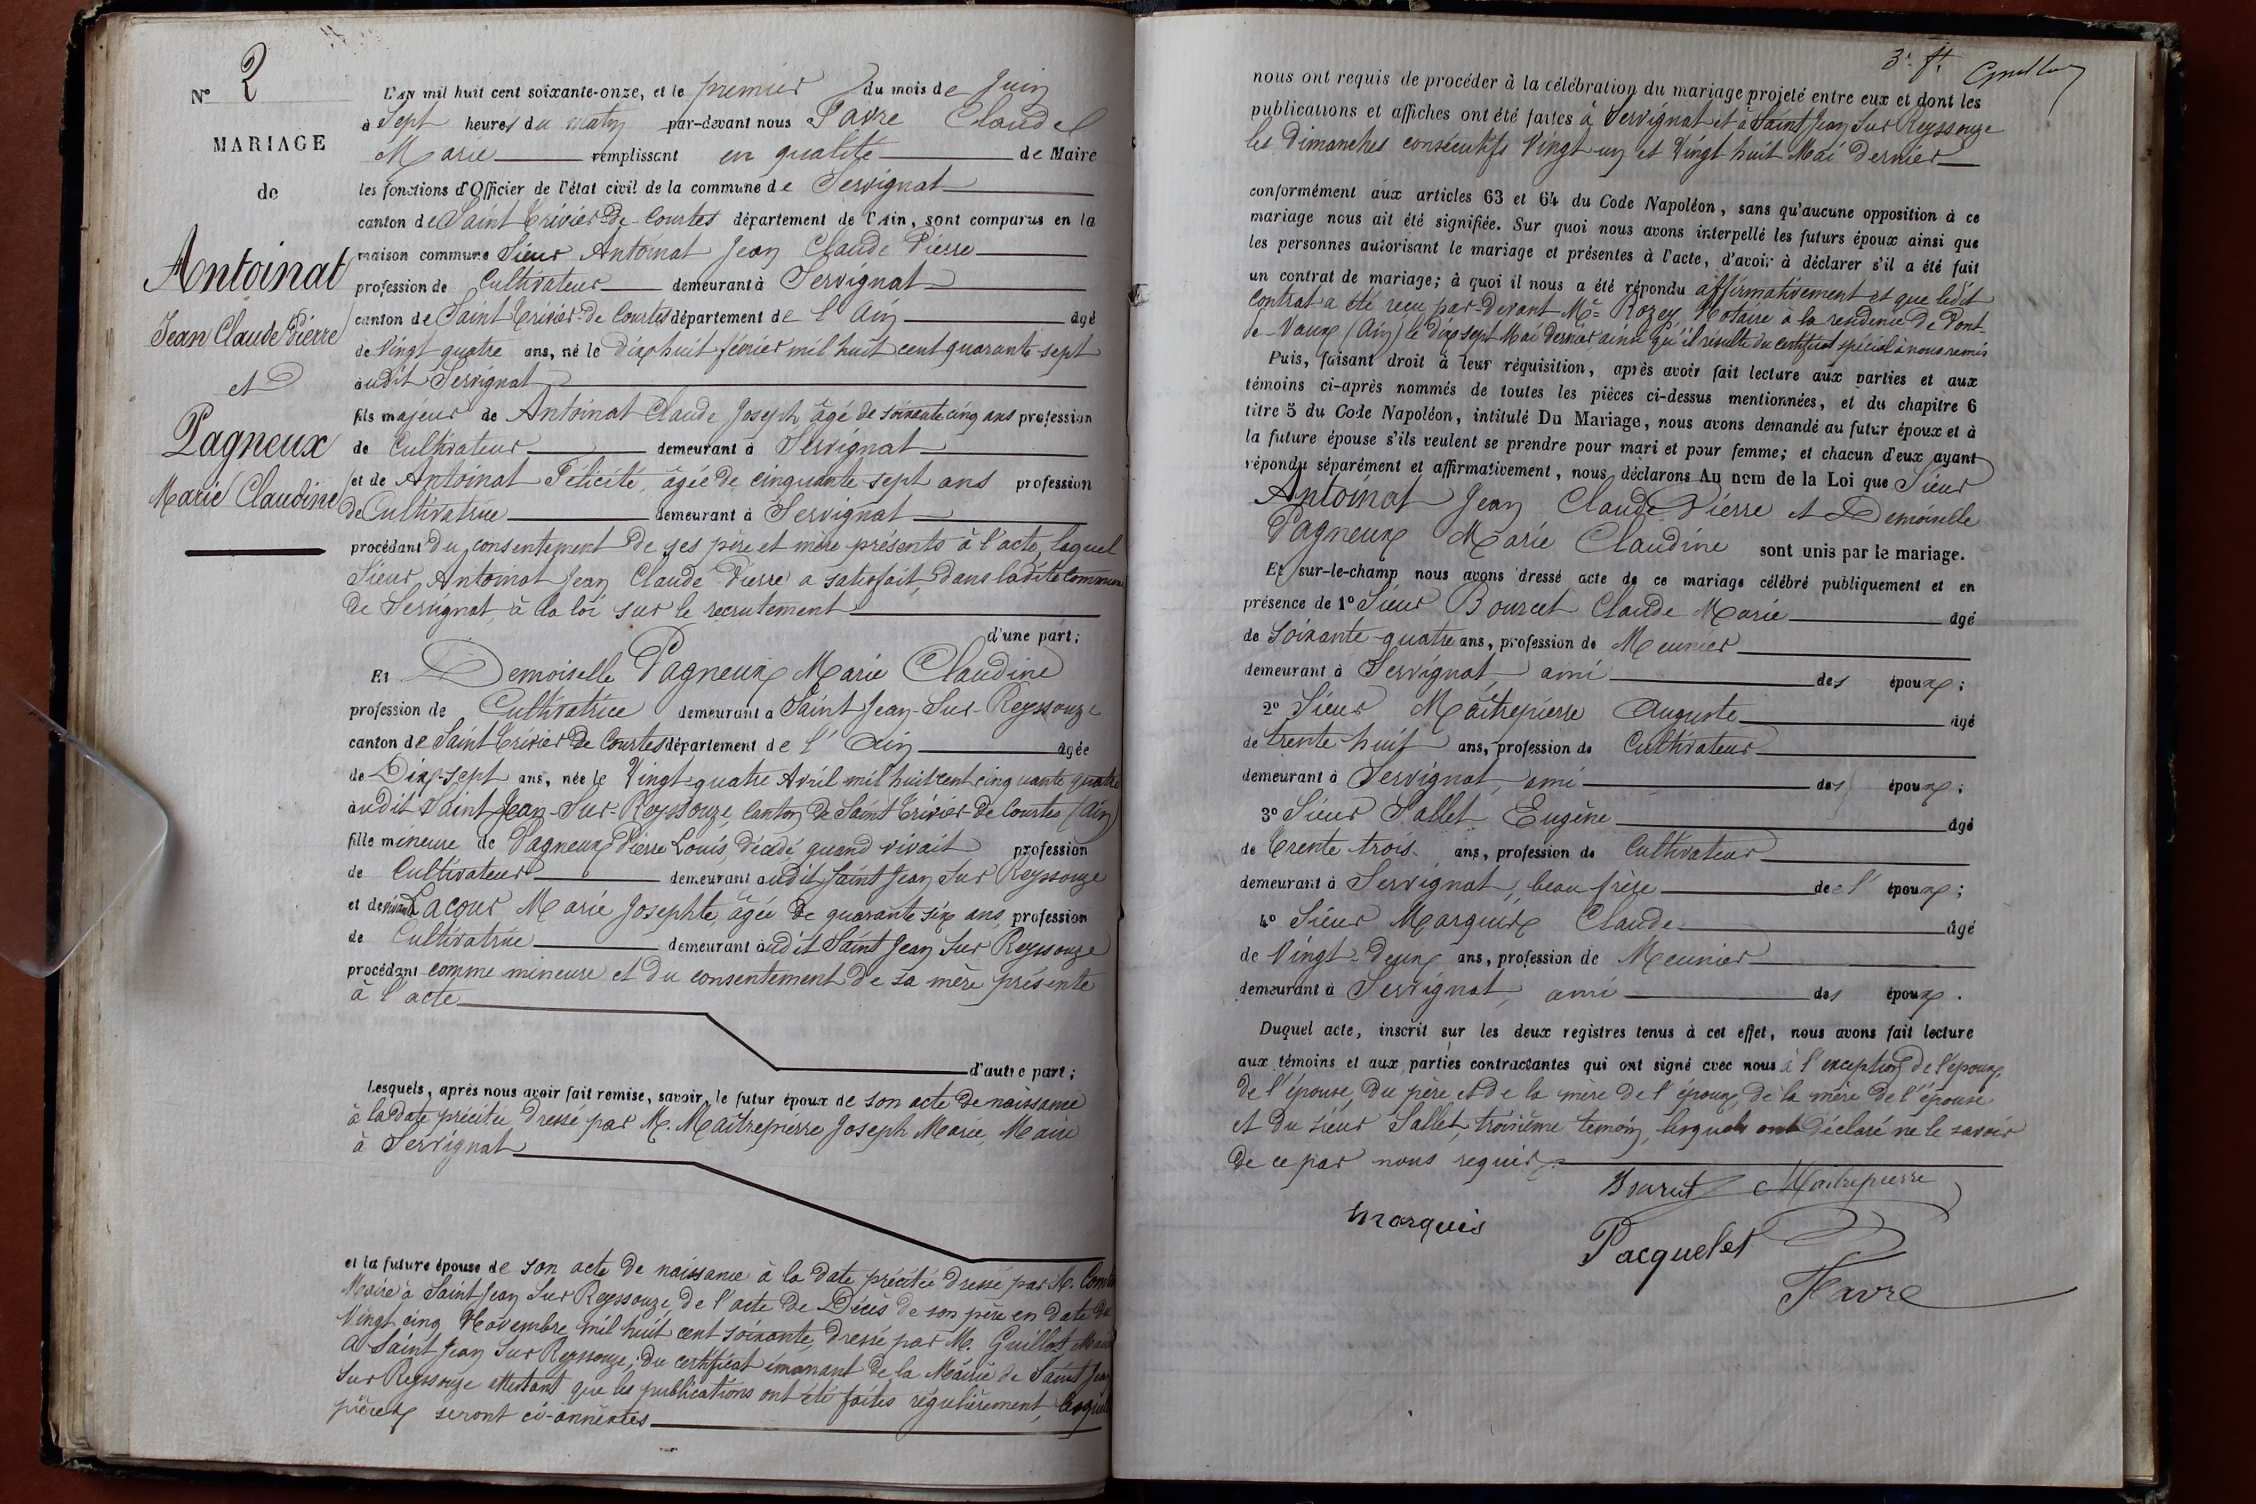 N° 2
MARIAGE
de
Antoinat
Jean Claude Pierre
et
Pagneux
Marie Claudine
L'an mil huit cent soixante-onze, et le premier du mois de Juin
à Sept heures du matin par-devant nous Favre Claude
Marie remplissant en qualité de Maire
les fonctions d'Officier de l'état civil de la commune de Servignat
canton de Saint Trivier-de-Courtes département de l'Ain, sont comparus en la
maison commune Sieur Antoinat Jean Claude Pierre
profession de Cultivateur demeurant à Servignat
canton de Saint Trivier-de Courtes département de l'Ain âgé
de Vingt quatre ans, né le Dix huit février mil huit cent quarante-sept
audit Servignat
fils majeur de Antoinat Claude Joseph, âgé de soixante cinq ans profession
de Cultivateur demeurant à Servignat
et de Antoinat Félicité, âgée de cinquante sept ans profession
de Cultivatrice demeurant à Servignat
procédant du consentement de ses père et mère présents à l'acte, lequel
Sieur Antoinat Jean Claude Pierre a satisfait, dans ladite commune
de Servignat, à la loi sur le recrutement
d'une part;
Et Demoiselle Pagneux Marie Claudine
profession de Cultivatrice demeurant à Saint Jean-Sur-Reyssouze
canton de Saint Trivier de Courtes département de l'Ain âgée
de Dix-sept ans, née le Vingt quatre Avril mil huit cent cinquante quatre
audit Saint Jean-Sur-Reyssouze, canton de Saint Trivier-de Courtes (Ain)
fille mineure de Pagneux Pierre Louis, décédé quand vivait profession
de Cultivateur demeurant audit Saint Jean Sur Reyssouze
et de vivante Lacour Marie Josephte, âgée de quarante six ans, profession
de Cultivatrice demeurant audit Saint Jean Sur Reyssouze
procédant comme mineure et du consentement de sa mère présente
à l'acte
d'autre part;
Lesquels, après nous avoir fait remise, savoir, le futur époux de son acte de naissance
à la date précitée, dressé par M. Maitrepierre Joseph Marie, Maire
à Servignat
et la future épouse de son acte de naissance à la date précitée dressé par M.
Maire à Saint Jean Sur Reyssouze, de l'acte de Décès de son père en date du
Vingt cinq Novembre mil huit cent soixante, dressé par M. Guillot, Maire
à Saint Jean Sur Reyssouze; du certificat émanant de la Mairie de Saint Jean
Sur Reyssouze attestant que les publications ont été faites régulièrement, lesquelles
pièces seront ci-annexées
3e ft.
nous ont requis de procéder à la célébration du mariage projeté entre eux et dont les
publications et affiches ont été faites à Servignat et à Saint Jean Sur Reyssouze
les Dimanches consécutifs Vingt un et Vingt huit Mai Dernier
conformément aux articles 63 et 64 du Code Napoléon, sans qu'aucune opposition à ce
mariage nous ait été signifiée. Sur quoi nous avons interpellé les futurs époux ainsi que
les personnes autorisant le mariage et présentes à l'acte, d'avoir à déclarer s'il a été fait
un contrat de mariage; à quoi il nous a été répondu affirmativement et que ledit
contrat a été reçu par-devant Me Rozey, Notaire à la résidence de Pont-
de-Vaux (Ain) le dix sept Mai dernier, ainsi qu'il résulte du certificat spécial à nous remis
Puis, faisant droit à leur réquisition, après avoir fait lecture aux parties et aux
témoins ci-après nommés de toutes les pièces ci-dessus mentionnées, et du chapitre 6
titre 5 du Code Napoléon, intitulé Du Mariage, nous avons demandé au futur époux et à
la future épouse s'ils veulent se prendre pour mari et pour femme; et chacun d'eux ayant
répondu séparément et affirmativement, nous déclarons Au nom de la Loi que Sieur
Antoinat Jean Claude Pierre et Demoiselle
Pagneux Marie Claudine sont unis par le mariage.
Et sur-le-champ nous avons dressé acte de ce mariage célébré publiquement et en
présence de 1° Sieur Bourcet Claude Marie âgé
de soixante-quatre ans, profession de Meunier
demeurant à Servignat, ami des époux;
2° Sieur Maîtrepierre Auguste âgé
de trente huit ans, profession de Cultivateur
demeurant à Servignat, ami des époux;
3° Sieur Sallet Eugène âgé
de Trente trois ans, profession de Cultivateur
demeurant à Servignat, beau frère de l'époux;
4° Sieur Marquis Claude âgé
de Vingt-Deux ans, profession de Meunier
demeurant à Servignat, ami des époux.
Duquel acte, inscrit sur les deux registres tenus à cet effet, nous avons fait lecture
aux témoins et aux parties contractantes qui ont signé avec nous à l'exception de l'époux,
de l'épouse, du père et de la mère de l'époux, de la mère de l'épouse
et du sieur Sallet, troisième témoin, lesquels ont déclaré ne le savoir
de ce par nous requis.
Bourcet Maitrepierre
Marquis
Pacquelet
Favre